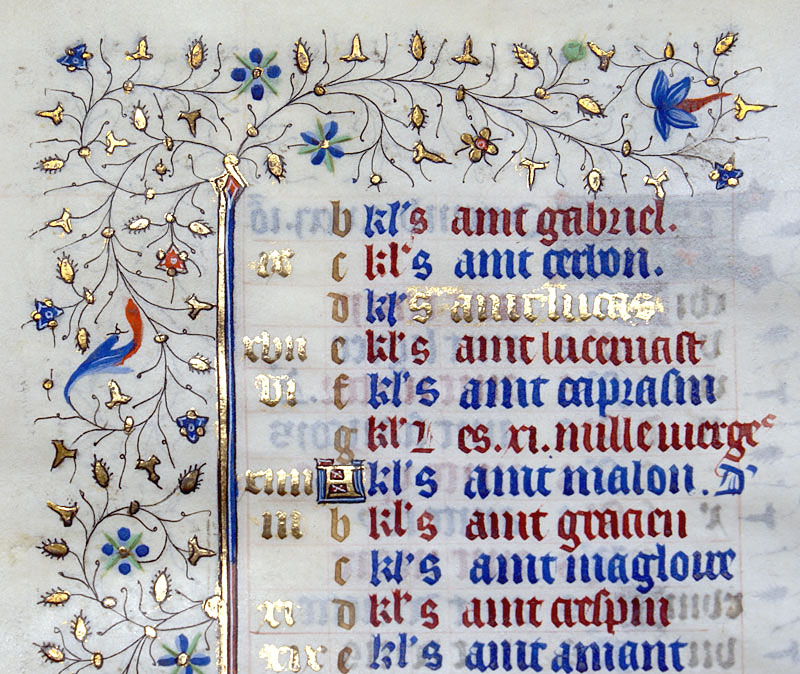 b kl' s aint gabriel.
ix c kl' s aint cerbon.
d kl' s aint lucas
xvii e kl' s aint lucernast
vi f kl' s aint caprasin
g kl' L es .xi. mille vierge
xiiii A kl' s aint malon. D'
iii b kl' s aint gracien
c kl' s aint magloire
xi d kl' s aint crespin
xix e kl' s aint amant